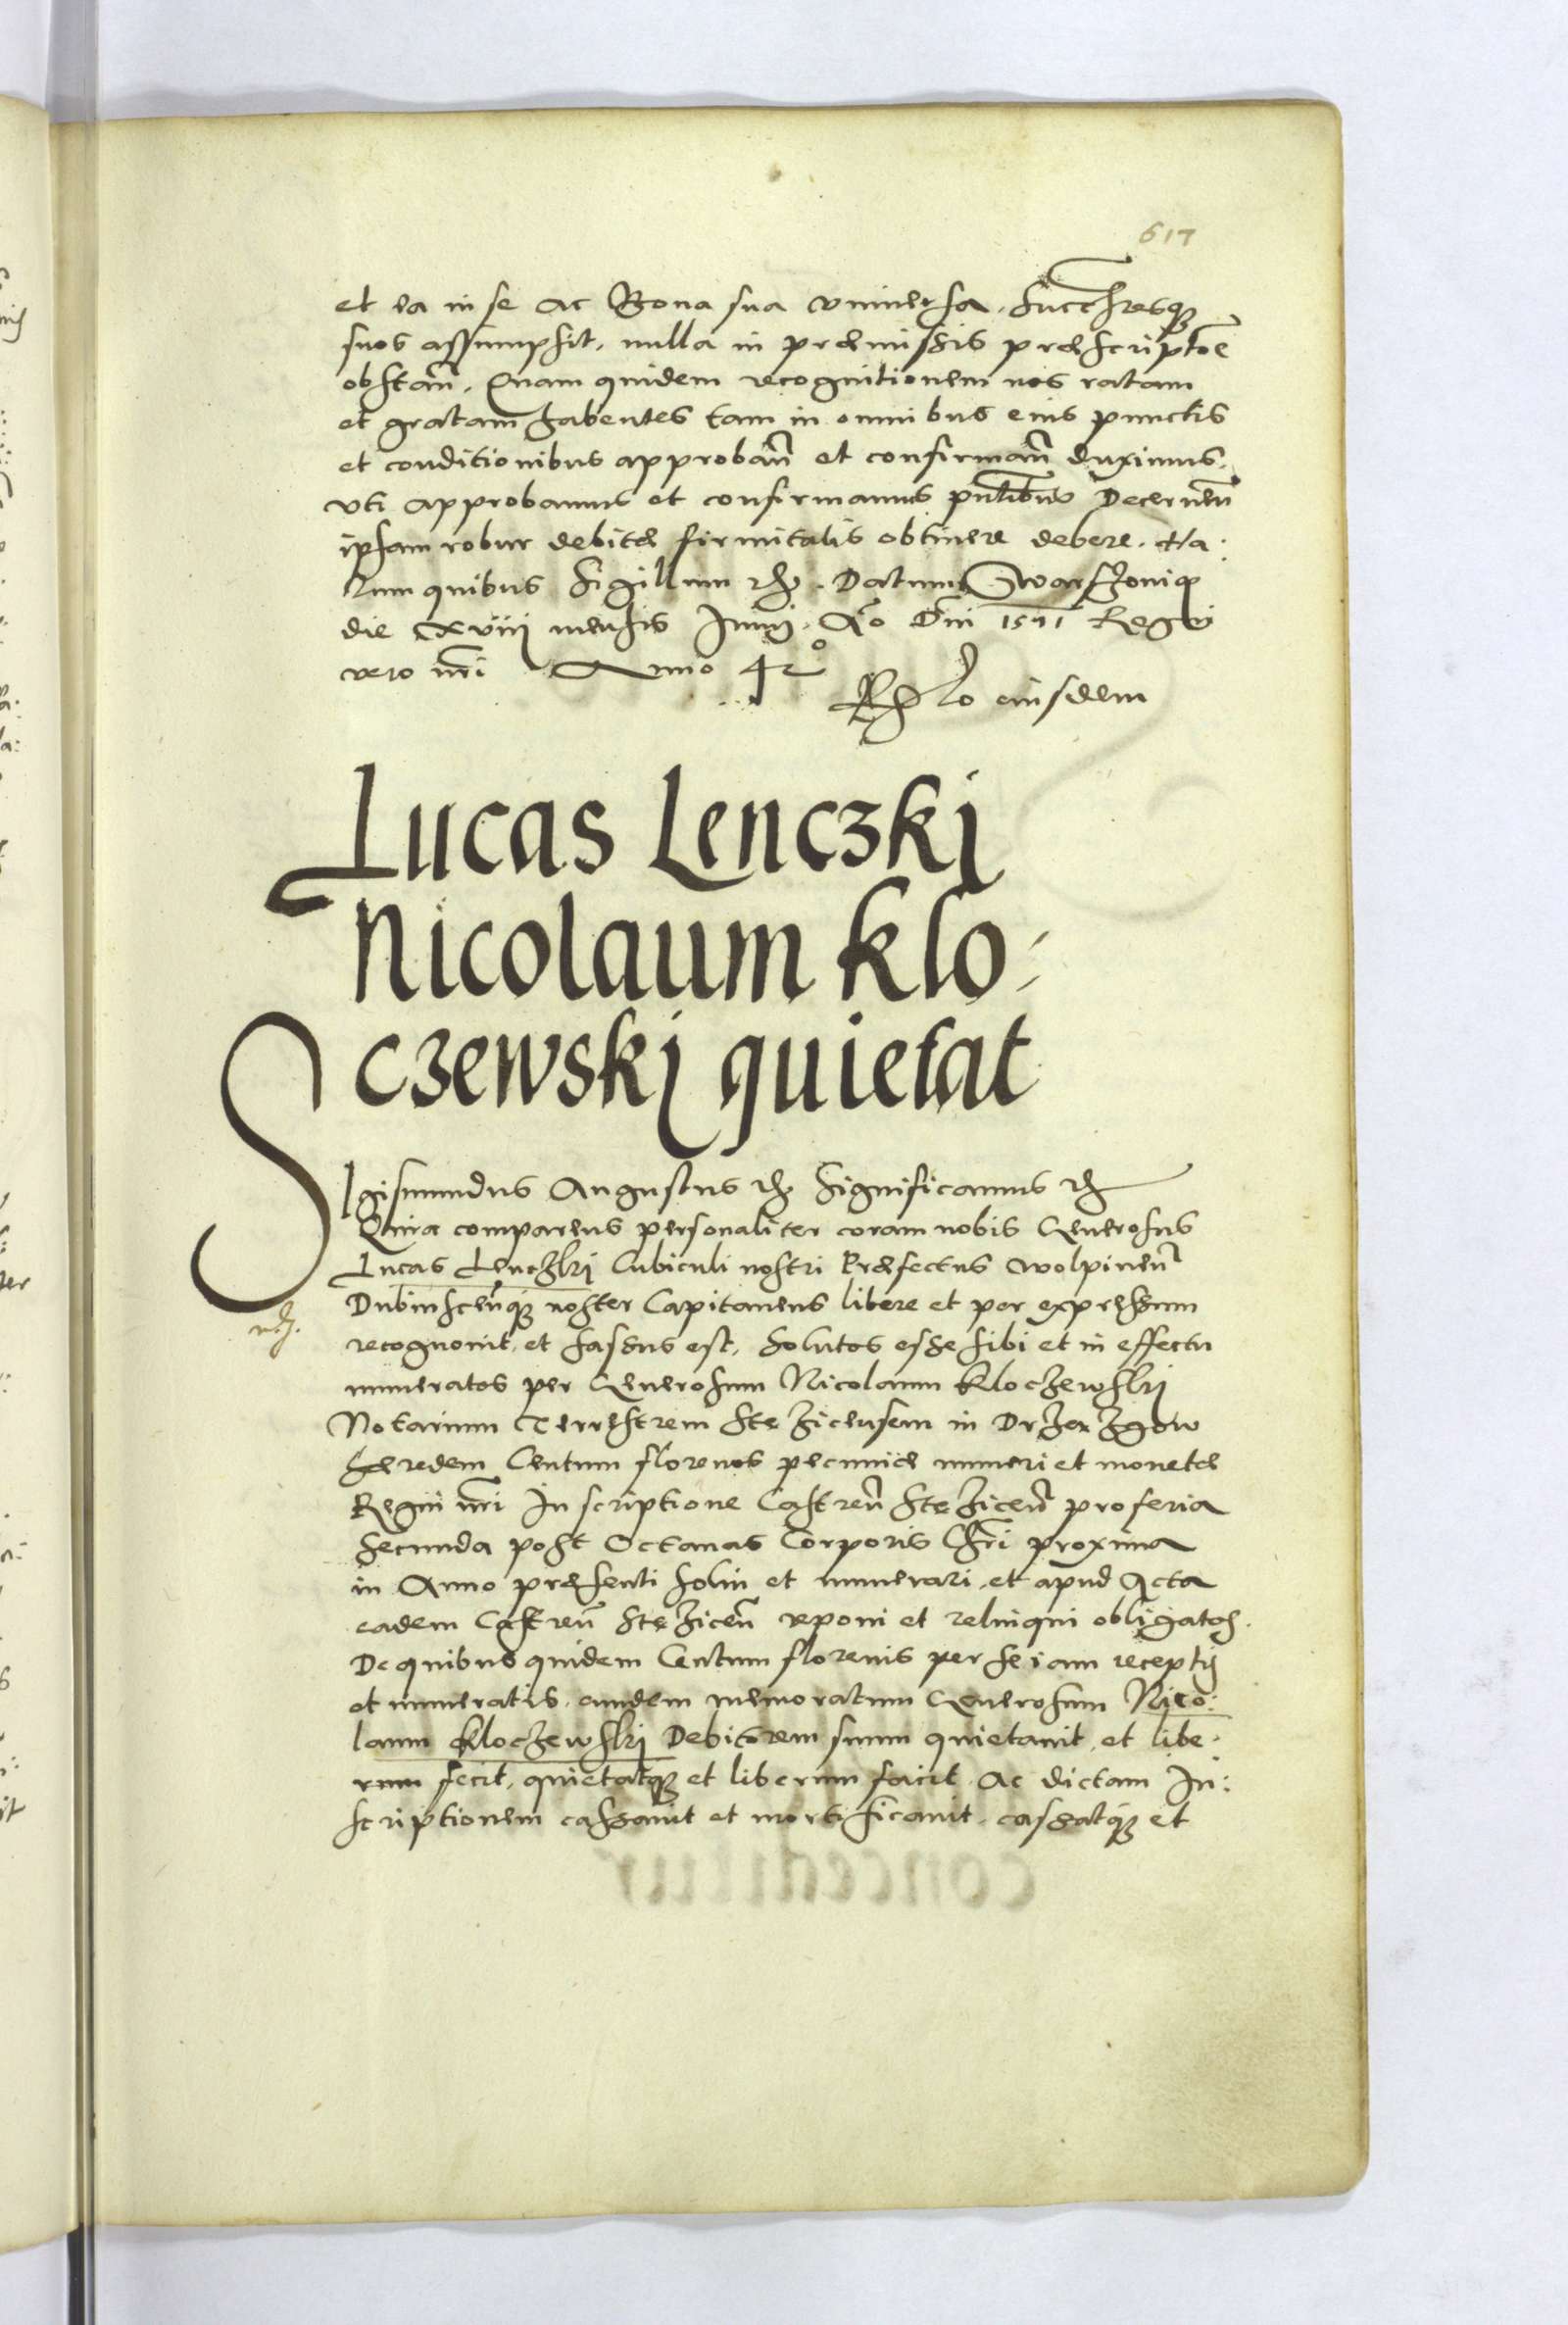 617
et ea in se ac Bona sua vniuersa. Successoresq
suos assumpsit. nulla in præmissis præscriptōe
obstān̄. Quam quidem recognitionem nos ratam
et gratam habentes tam in omnibus eius punctis
et conditionibus approban̄ et confirman̄ duximus.
vti approbamus et confirmamus pn̄tibus Decernen̄
ipsam robur debitæ firmitatis obtinere debere. Ha:
rum quibus Sigillum etc. Datum Warschouiæ
die xviij mensis Junij. Aō Dn̄i 1571 Regni
vero nr̄i Anno 42°
Rlō eiusdem
Lucas Lenczkj
Nicolaum Klo-
czewskj quietat
Sigismundus Augustus etc. Significamus etc.
Quia comparens personaliter coram nobis Generosus
Lucas Lenczkj Cubiculi nostri Præfectus Wolpinen̄
Dubinscen̄q noster Capitaneus libere et per expressum
recognouit et fassus est, Solutos esse sibi et in effectu
numeratos per Generosum Nicolaum Kloczewskj
Notarium Terrestrem Stęziciensem in Drzązgow
hæredem Centum florenos pecuniæ numeri et monetæ
Regni nr̄i Inscriptione Castren̄ Stęzicen̄ pro feria
secunda post Octauas Corporis Chr̄i proxima
in Anno præsenti solui et numerari et apud Acta
eadem Castren̄ Stęzicen̄ reponi et relinqui obligatos.
De quibus quidem Centum florenis per se iam receptis
et numeratis eundem memoratum Generosum Nico:
laum Kloczewskj Debitorem suum quietauit et libe-
rum fecit, quietatq et liberum facit Ac dictam In:
scriptionem cassauit et mortificauit. cassatq et